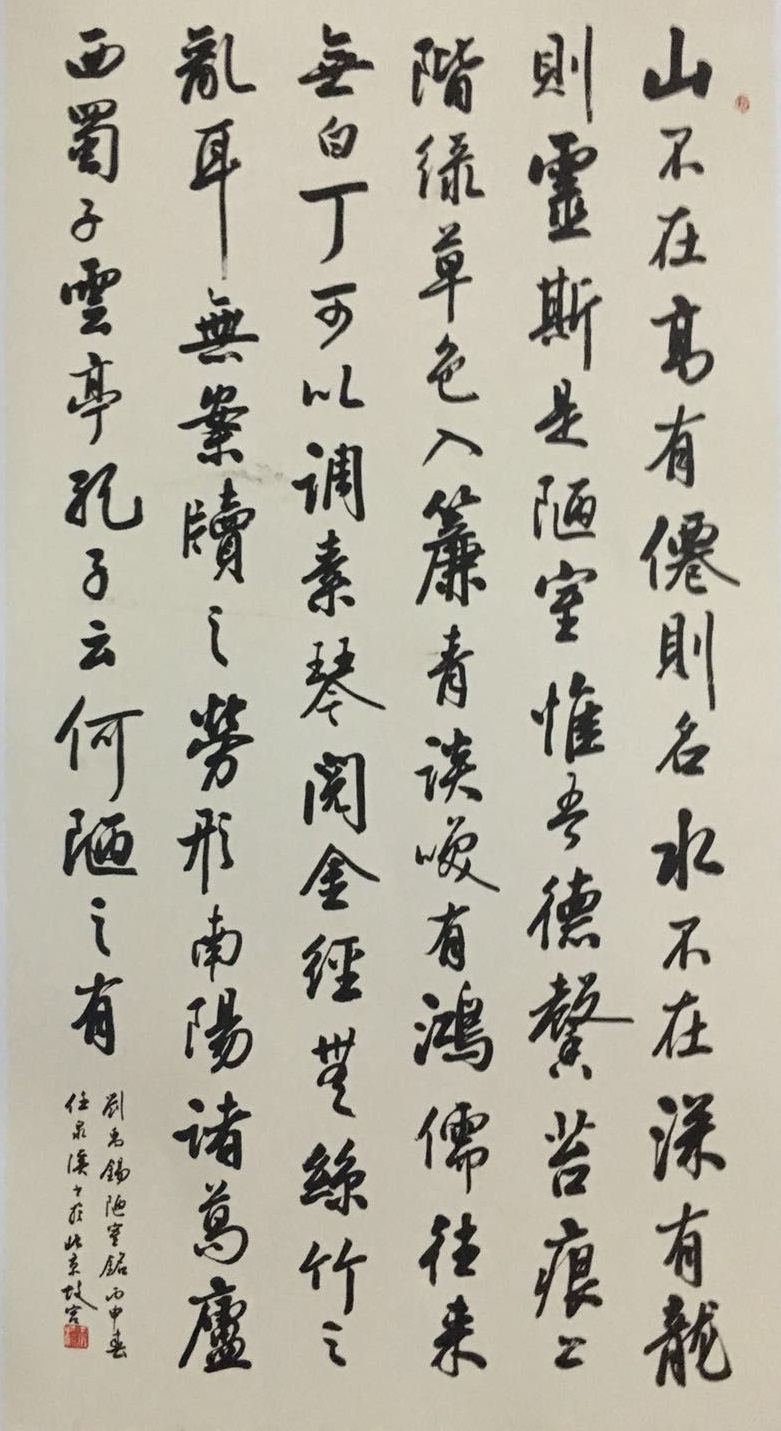 山不在高有僊則名水不在深有龍
則靈斯是陋室惟吾德馨苔痕上
階緑草色入簾青談唉有鴻儒往来
無白丁可以調素琴閱金經無絲竹之
亂耳無案牘之勞形南陽諸葛廬
西蜀子雲亭孔子云何陋之有
劉禹錫陋室銘丙申春
任泉溪书於北京故宫